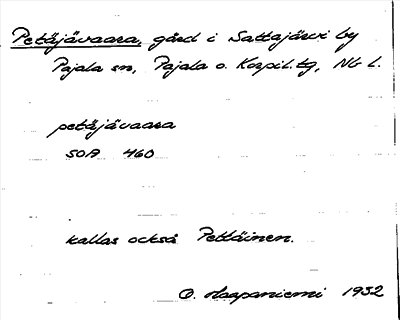 Petäjävaara, gård i Sattajärvi by
Pajala sn, Pajala o. Korpil. tg, Nb l.
petäjävaara
SOA 460
kallas också Pettäinen.
O. Haapaniemi 1932